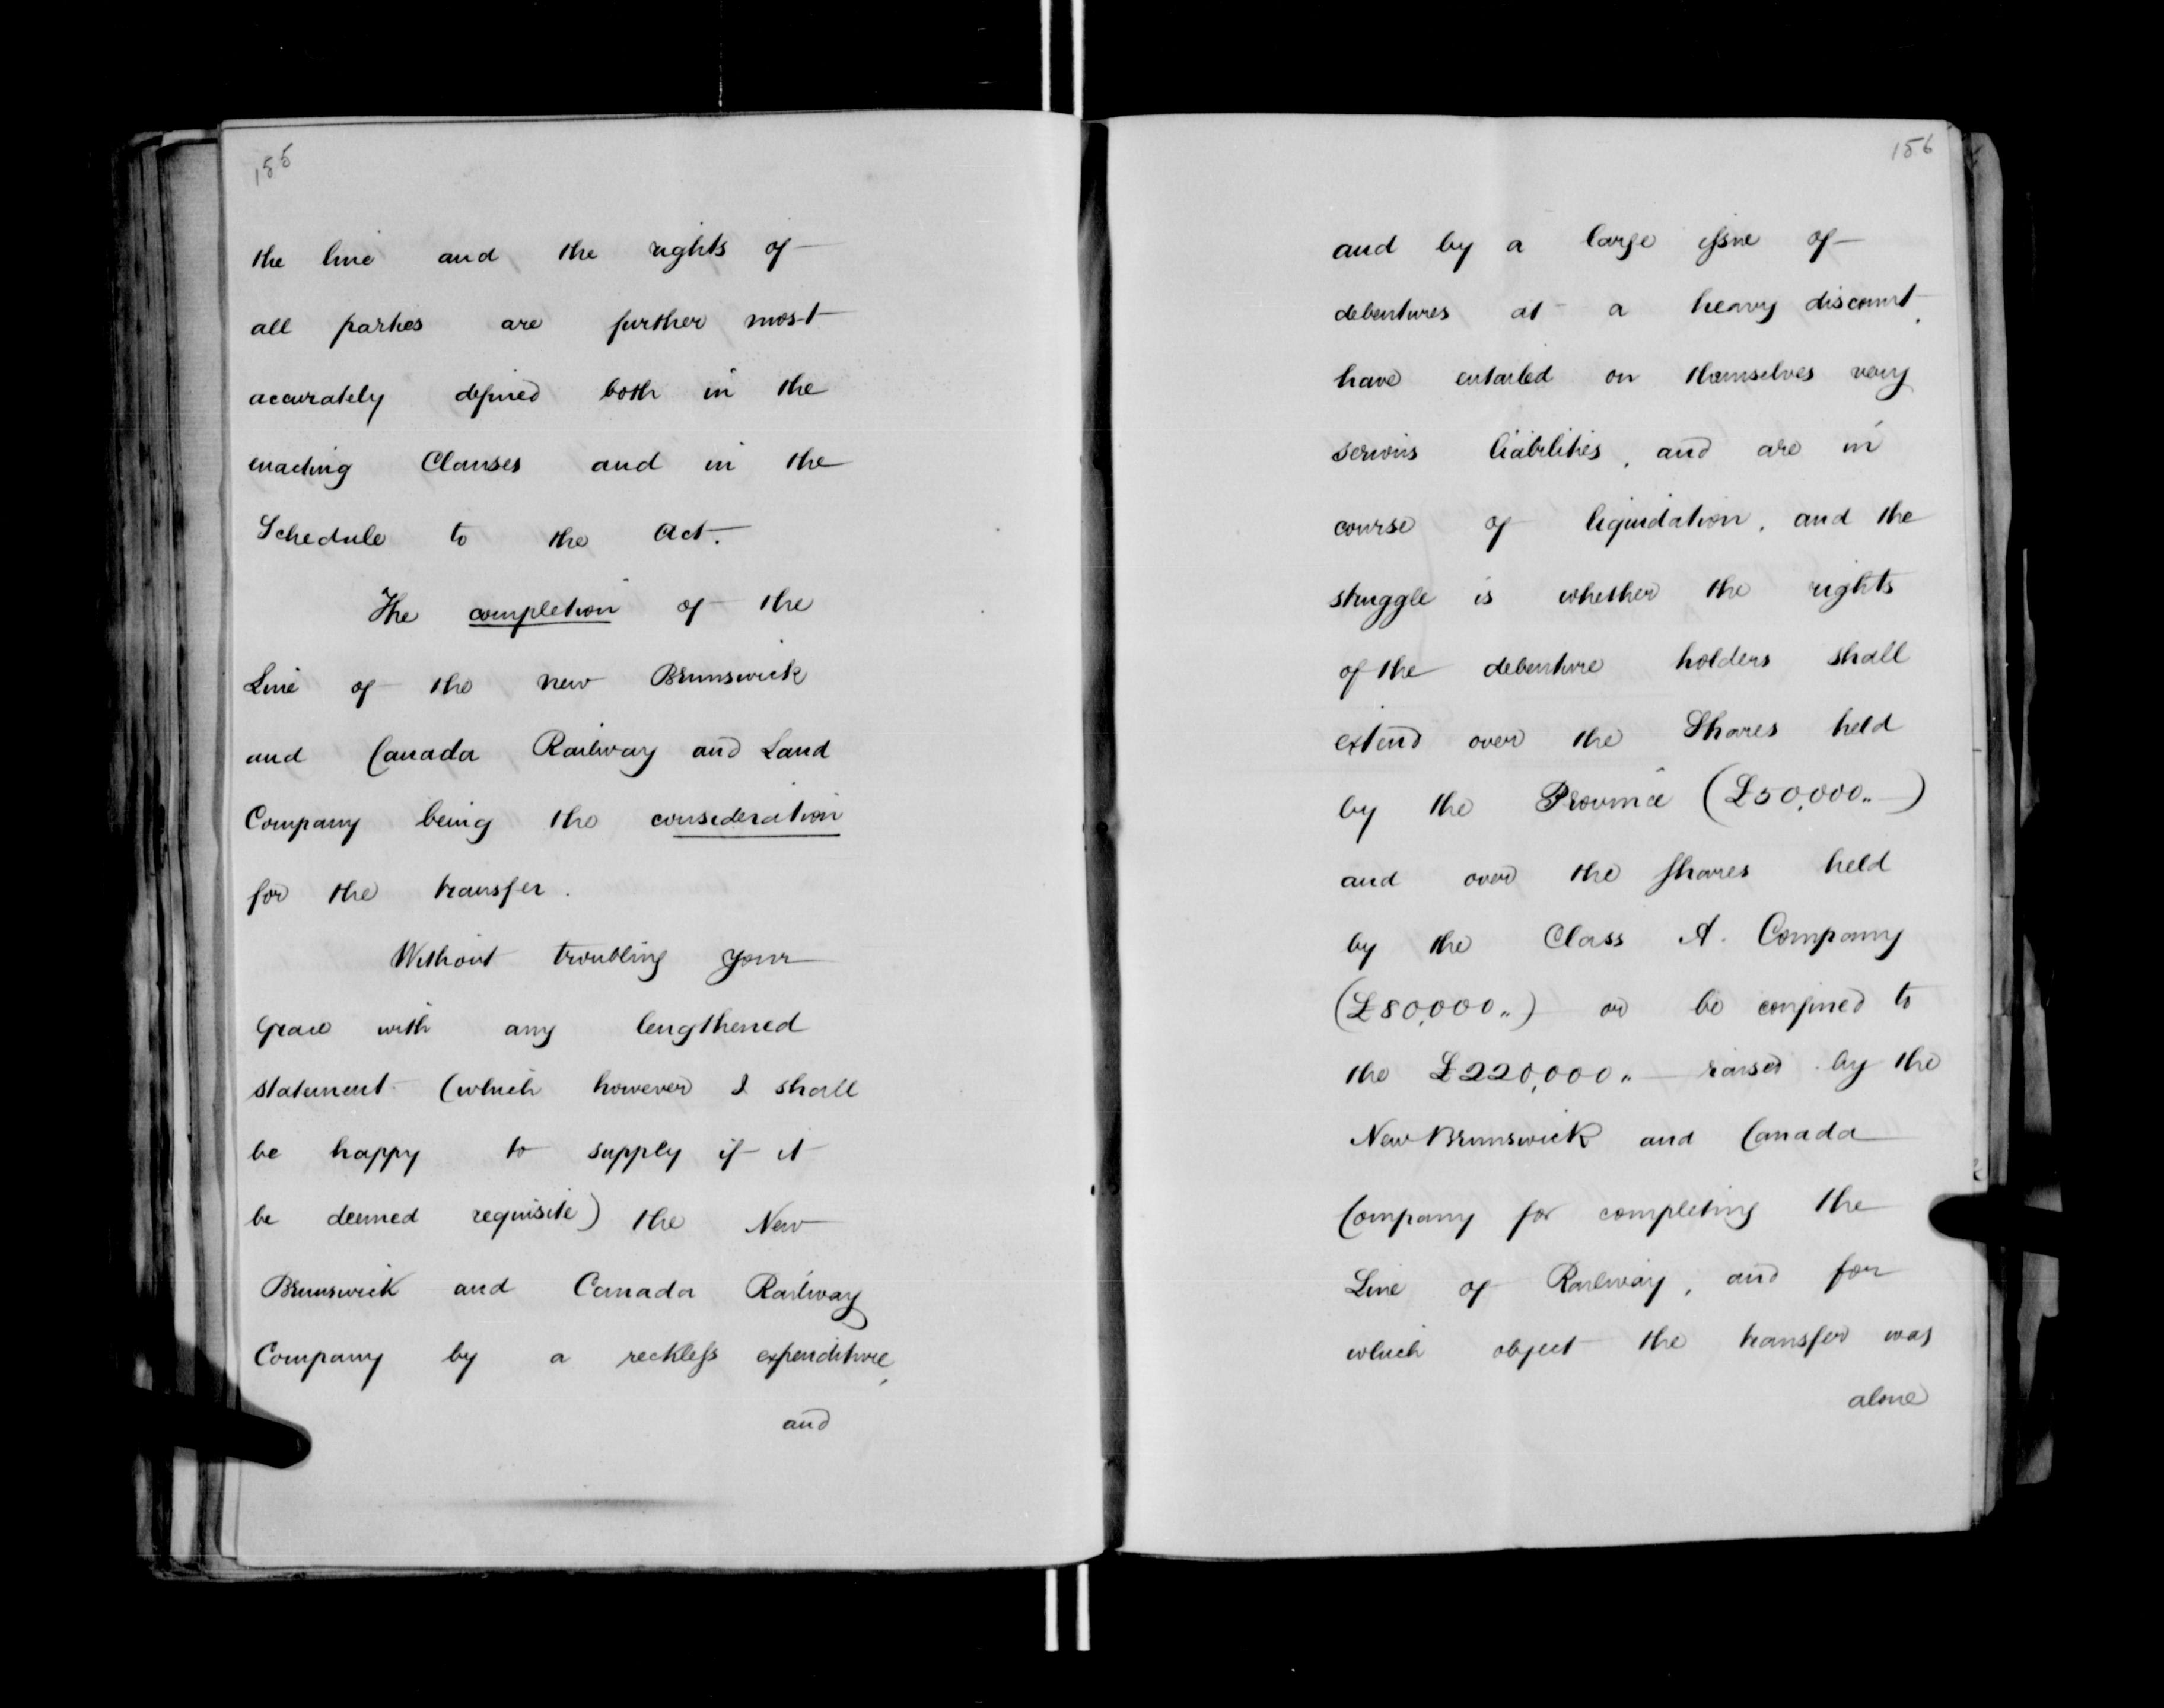 155
the line and the rights of
all parties are further most
accurately defined both in the
enacting Clauses and in the
Schedule to the Act.
The completion of the
Line of the new Brunswick
and Canada Railway and Land
Company being the consideration
for the transfer.
Without troubling your
Grace with any lengthened
statement (which however I shall
be happy to supply if it
be deemed requisite) the New
Brunswick and Canada Railway
Company by a reckless expenditure,
and
156
and by a large issue of
debentures at a heavy discount,
have entailed on themselves very
serious liabilities, and are in
course of liquidation, and the
struggle is whether the rights
of the debenture holders shall
extend over the Shares held
by the Province (£50,000..—)
and over the Shares held
by the Class A. Company
(£80,000..) or be confined to
the £220,000..— raised by the
New Brunswick and Canada
Company for completing the
Line of Railway, and for
which object the transfer was
alone